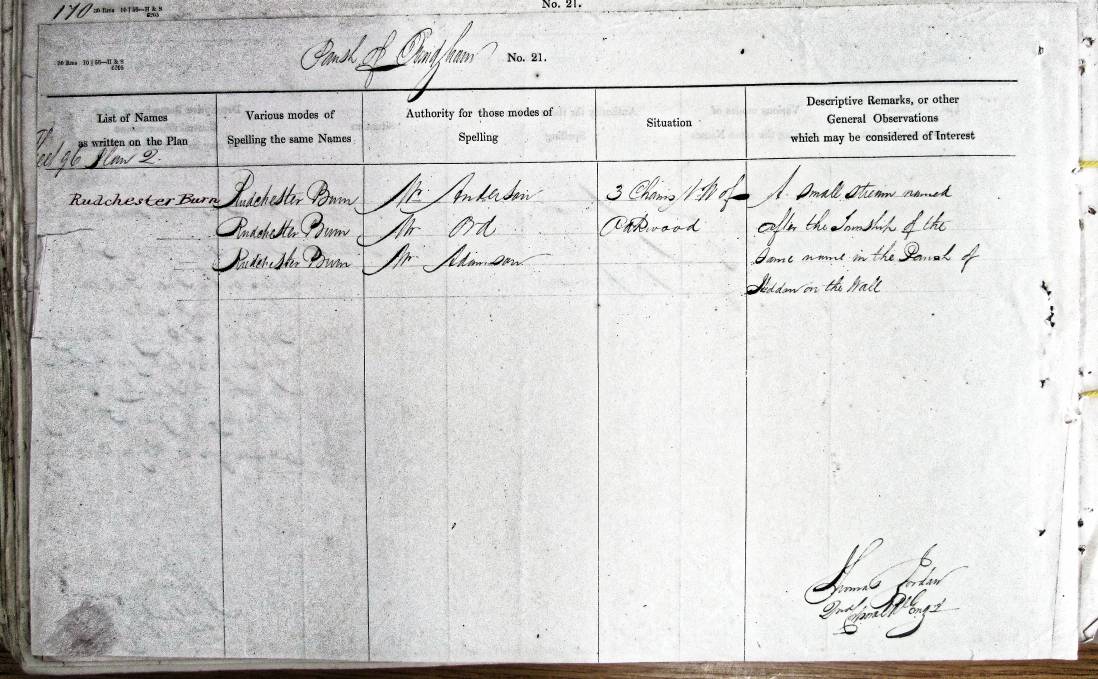 No. 21.
170 30 Rms 10 | 58—H & S
6205
30 Rms 10 | 58—H & S
6205
Parish of Ovingham No. 21.
List of Names
as written on the Plan
Various modes of
Spelling the same Names
Authority for those modes of
Spelling
Situation
Descriptive Remarks, or other
General Observations
which may be considered of Interest
96 Plan 2.
Rudchester Burn Rudchester Burn Mr. Anderson 3 Chains N.W of A small stream named
Rudchester Burn Mr Ord Oakwood after the Township of the
Rudchester Burn Mr. Adamson same name in the Parish of
Heddon on the Wall
Thomas Jordan